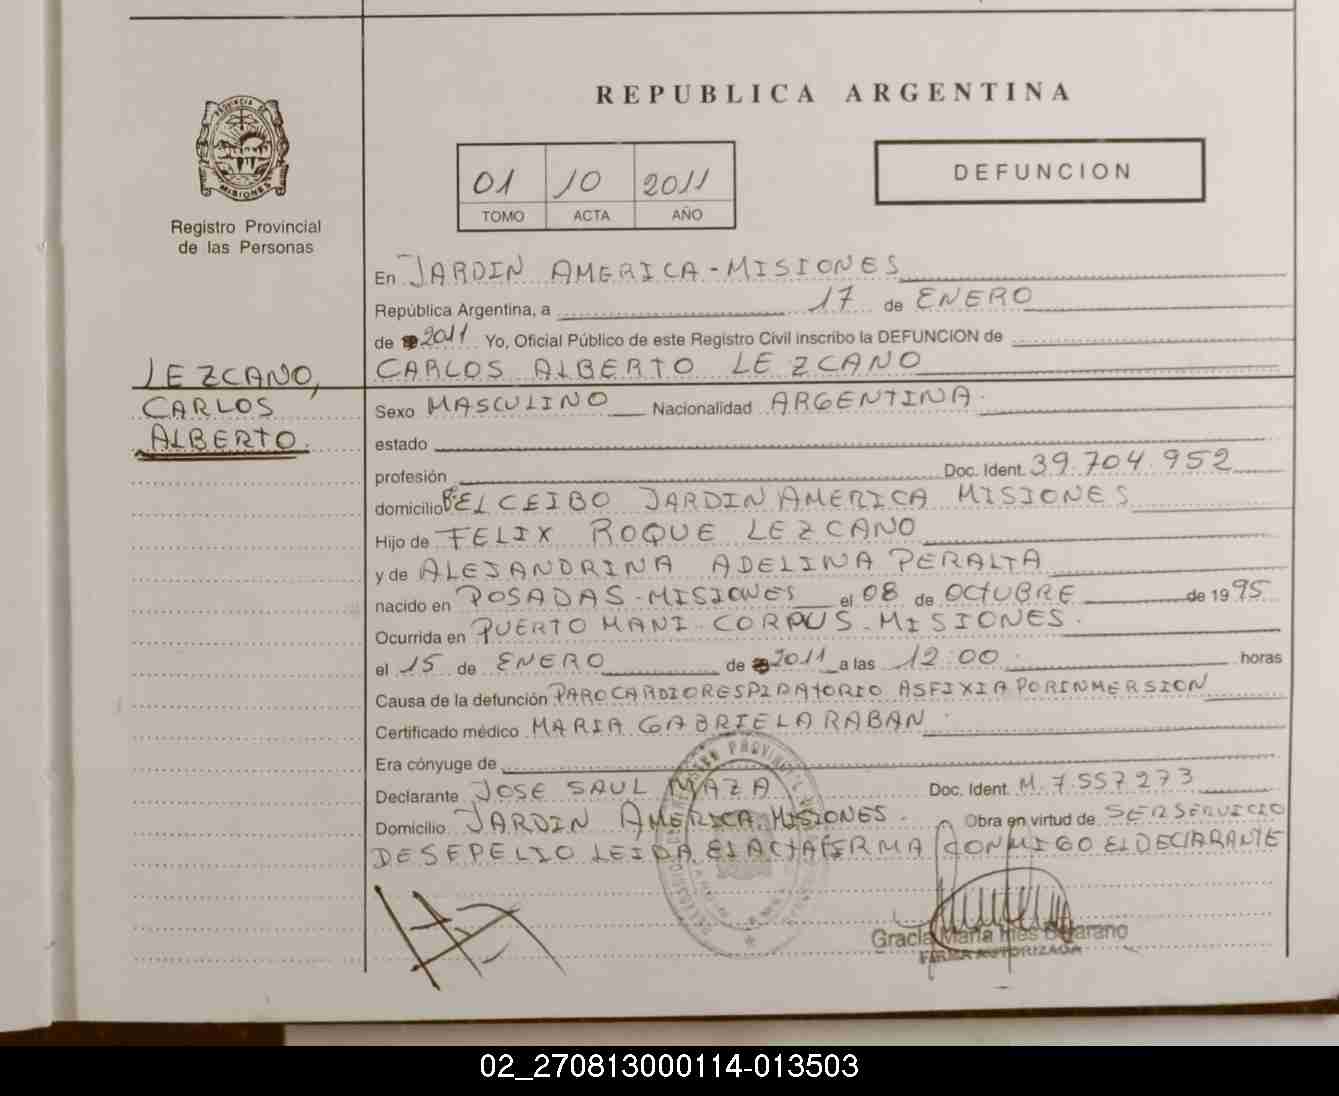 REPUBLICA ARGENTINA
PROVINCIA DE
MISIONES
Registro Provincial
de las Personas
01 10 2011
TOMO ACTA AÑO
DEFUNCION
En JARDIN AMERICA - MISIONES
República Argentina, a 17 de ENERO
de 2011 Yo, Oficial Público de este Registro Civil inscribo la DEFUNCION de
CARLOS ALBERTO LEZCANO
LEZCANO,
CARLOS
ALBERTO.
Sexo MASCULINO Nacionalidad ARGENTINA.
estado
profesión Doc. Ident. 39.704.952
domicilio Bº EL CEIBO JARDIN AMERICA MISIONES
Hijo de FELIX ROQUE LEZCANO
y de ALEJANDRINA ADELINA PERALTA
nacido en POSADAS - MISIONES el 08 de OCTUBRE de 1995
Ocurrida en PUERTO MANI - CORPUS - MISIONES.
el 15 de ENERO de 2011 a las 12:00 horas
Causa de la defunción PARO CARDIORESPIRATORIO ASFIXIA POR INMERSION
Certificado médico MARIA GABRIELA RABAN
Era cónyuge de
Declarante JOSE SAUL MAZA Doc. Ident. M. 7.557.273
Domicilio JARDIN AMERICA. MISIONES. Obra en virtud de SER SERVICIO
DE SEPELIO LEIDA EL ACTA FIRMA CONMIGO EL DECLARANTE
Gracia María Inés
FIRMA AUTORIZADA
02_270813000114-013503